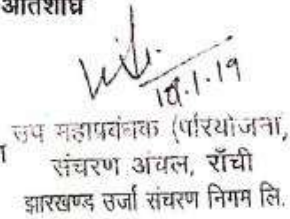 अतिशीघ्र
18.1.19
उप महाप्रबंधक (परियोजना,
संचरण अंचल, राँची
झारखण्ड उर्जा संचरण निगम लि.